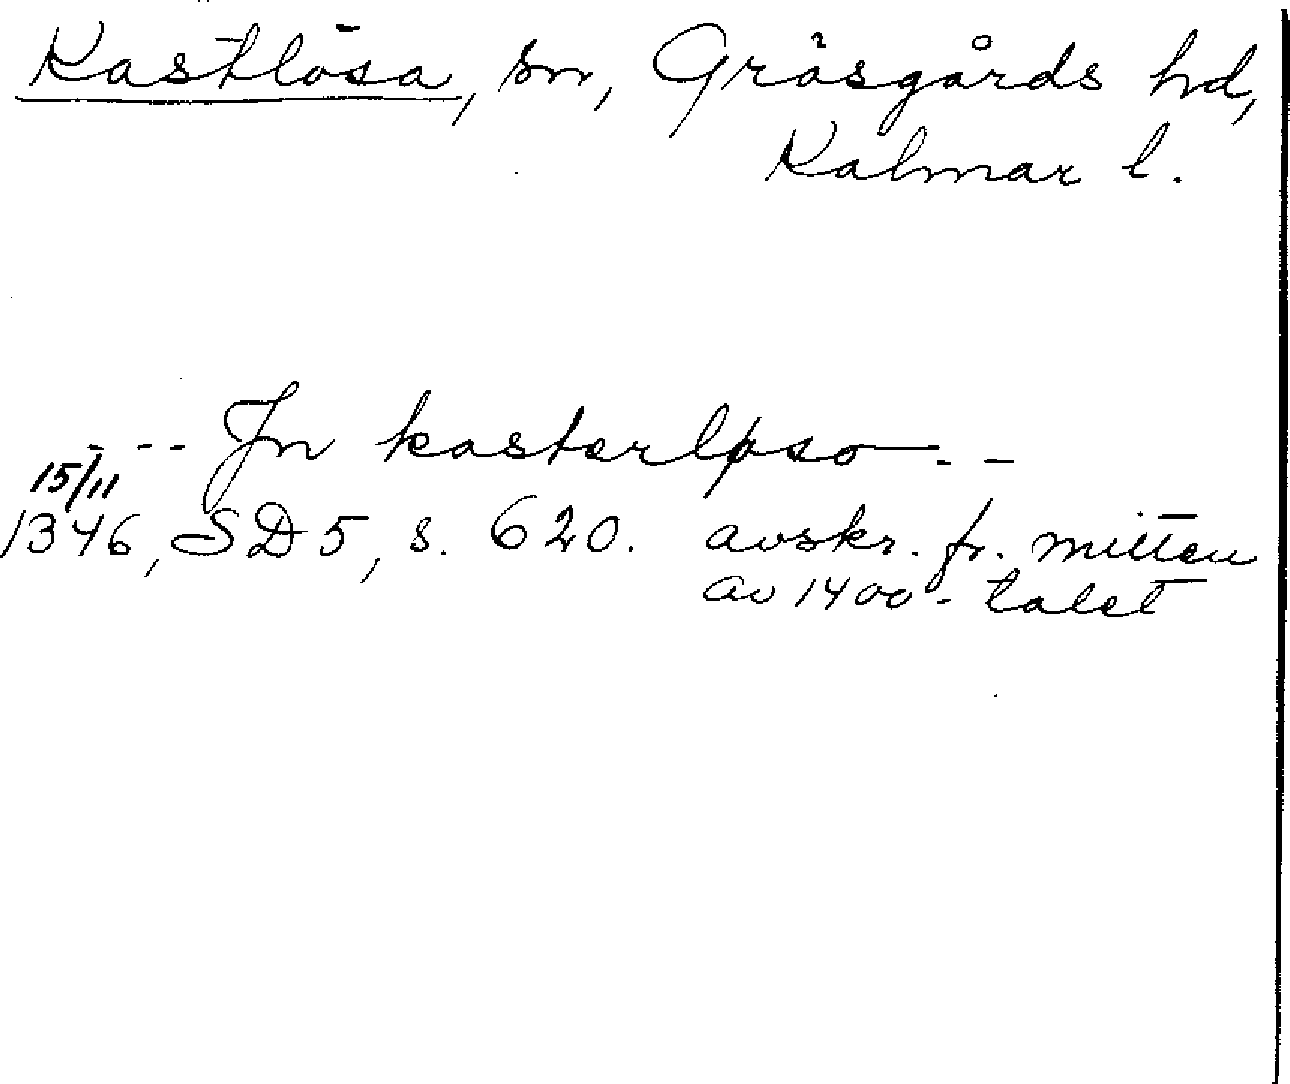 Kastlösa, sn, Gräsgårds hd,
Kalmar l.
--- Jn kasterløso---
15/11
1346, SD 5, s. 620. avskr. fr. mitten
av 1400-talet